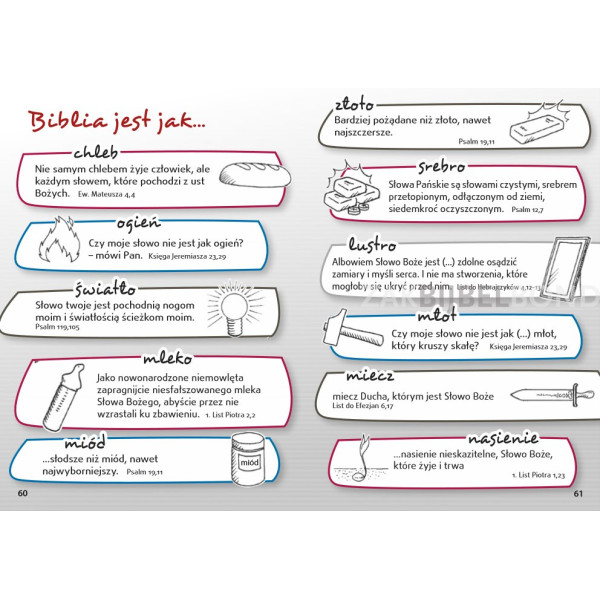 Biblia jest jak...
chleb
Nie samym chlebem żyje człowiek, ale
każdym słowem, które pochodzi z ust
Bożych. Ew. Mateusza 4,4
ogień
Czy moje słowo nie jest jak ogień?
– mówi Pan. Księga Jeremiasza 23,29
światło
Słowo twoje jest pochodnią nogom
moim i światłością ścieżkom moim.
Psalm 119,105
mleko
Jako nowonarodzone niemowlęta
zapragnijcie niesfałszowanego mleka
Słowa Bożego, abyście przez nie
wzrastali ku zbawieniu. 1. List Piotra 2,2
miód
...słodsze niż miód, nawet
najwyborniejszy. Psalm 19,11
miód
60
złoto
Bardziej pożądane niż złoto, nawet
najszczersze.
Psalm 19,11
srebro
Słowa Pańskie są słowami czystymi, srebrem
przetopionym, odłączonym od ziemi,
siedemkroć oczyszczonym. Psalm 12,7
lustro
Albowiem Słowo Boże jest (...) zdolne osądzić
zamiary i myśli serca. I nie ma stworzenia, które
mogłoby się ukryć przed nim. List do Hebrajczyków 4,12-13
młot
Czy moje słowo nie jest jak (...) młot,
który kruszy skałę? Księga Jeremiasza 23,29
miecz
miecz Ducha, którym jest Słowo Boże
List do Efezjan 6,17
nasienie
...nasienie nieskazitelne, Słowo Boże,
które żyje i trwa
1. List Piotra 1,23
61